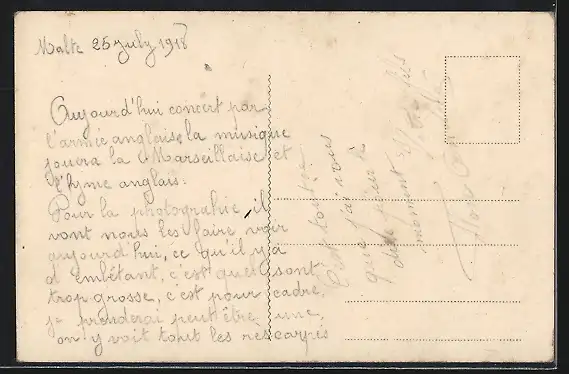 Malte 25 July 1918
Aujourd'hui concert par
l'armée anglaise, la musique
jouera la Marseillaise et
l'hyme anglais.
Pour la photographie, il
vont nous les faire voir
aujourd'hui, ce qu'il y a
d'embêtant, c'est que sont
trop grosse, c'est pour cadre,
je prenderai peut être une,
on y voit tout les rescapés
C'est tout
que j'ai vous
dire pour
moment